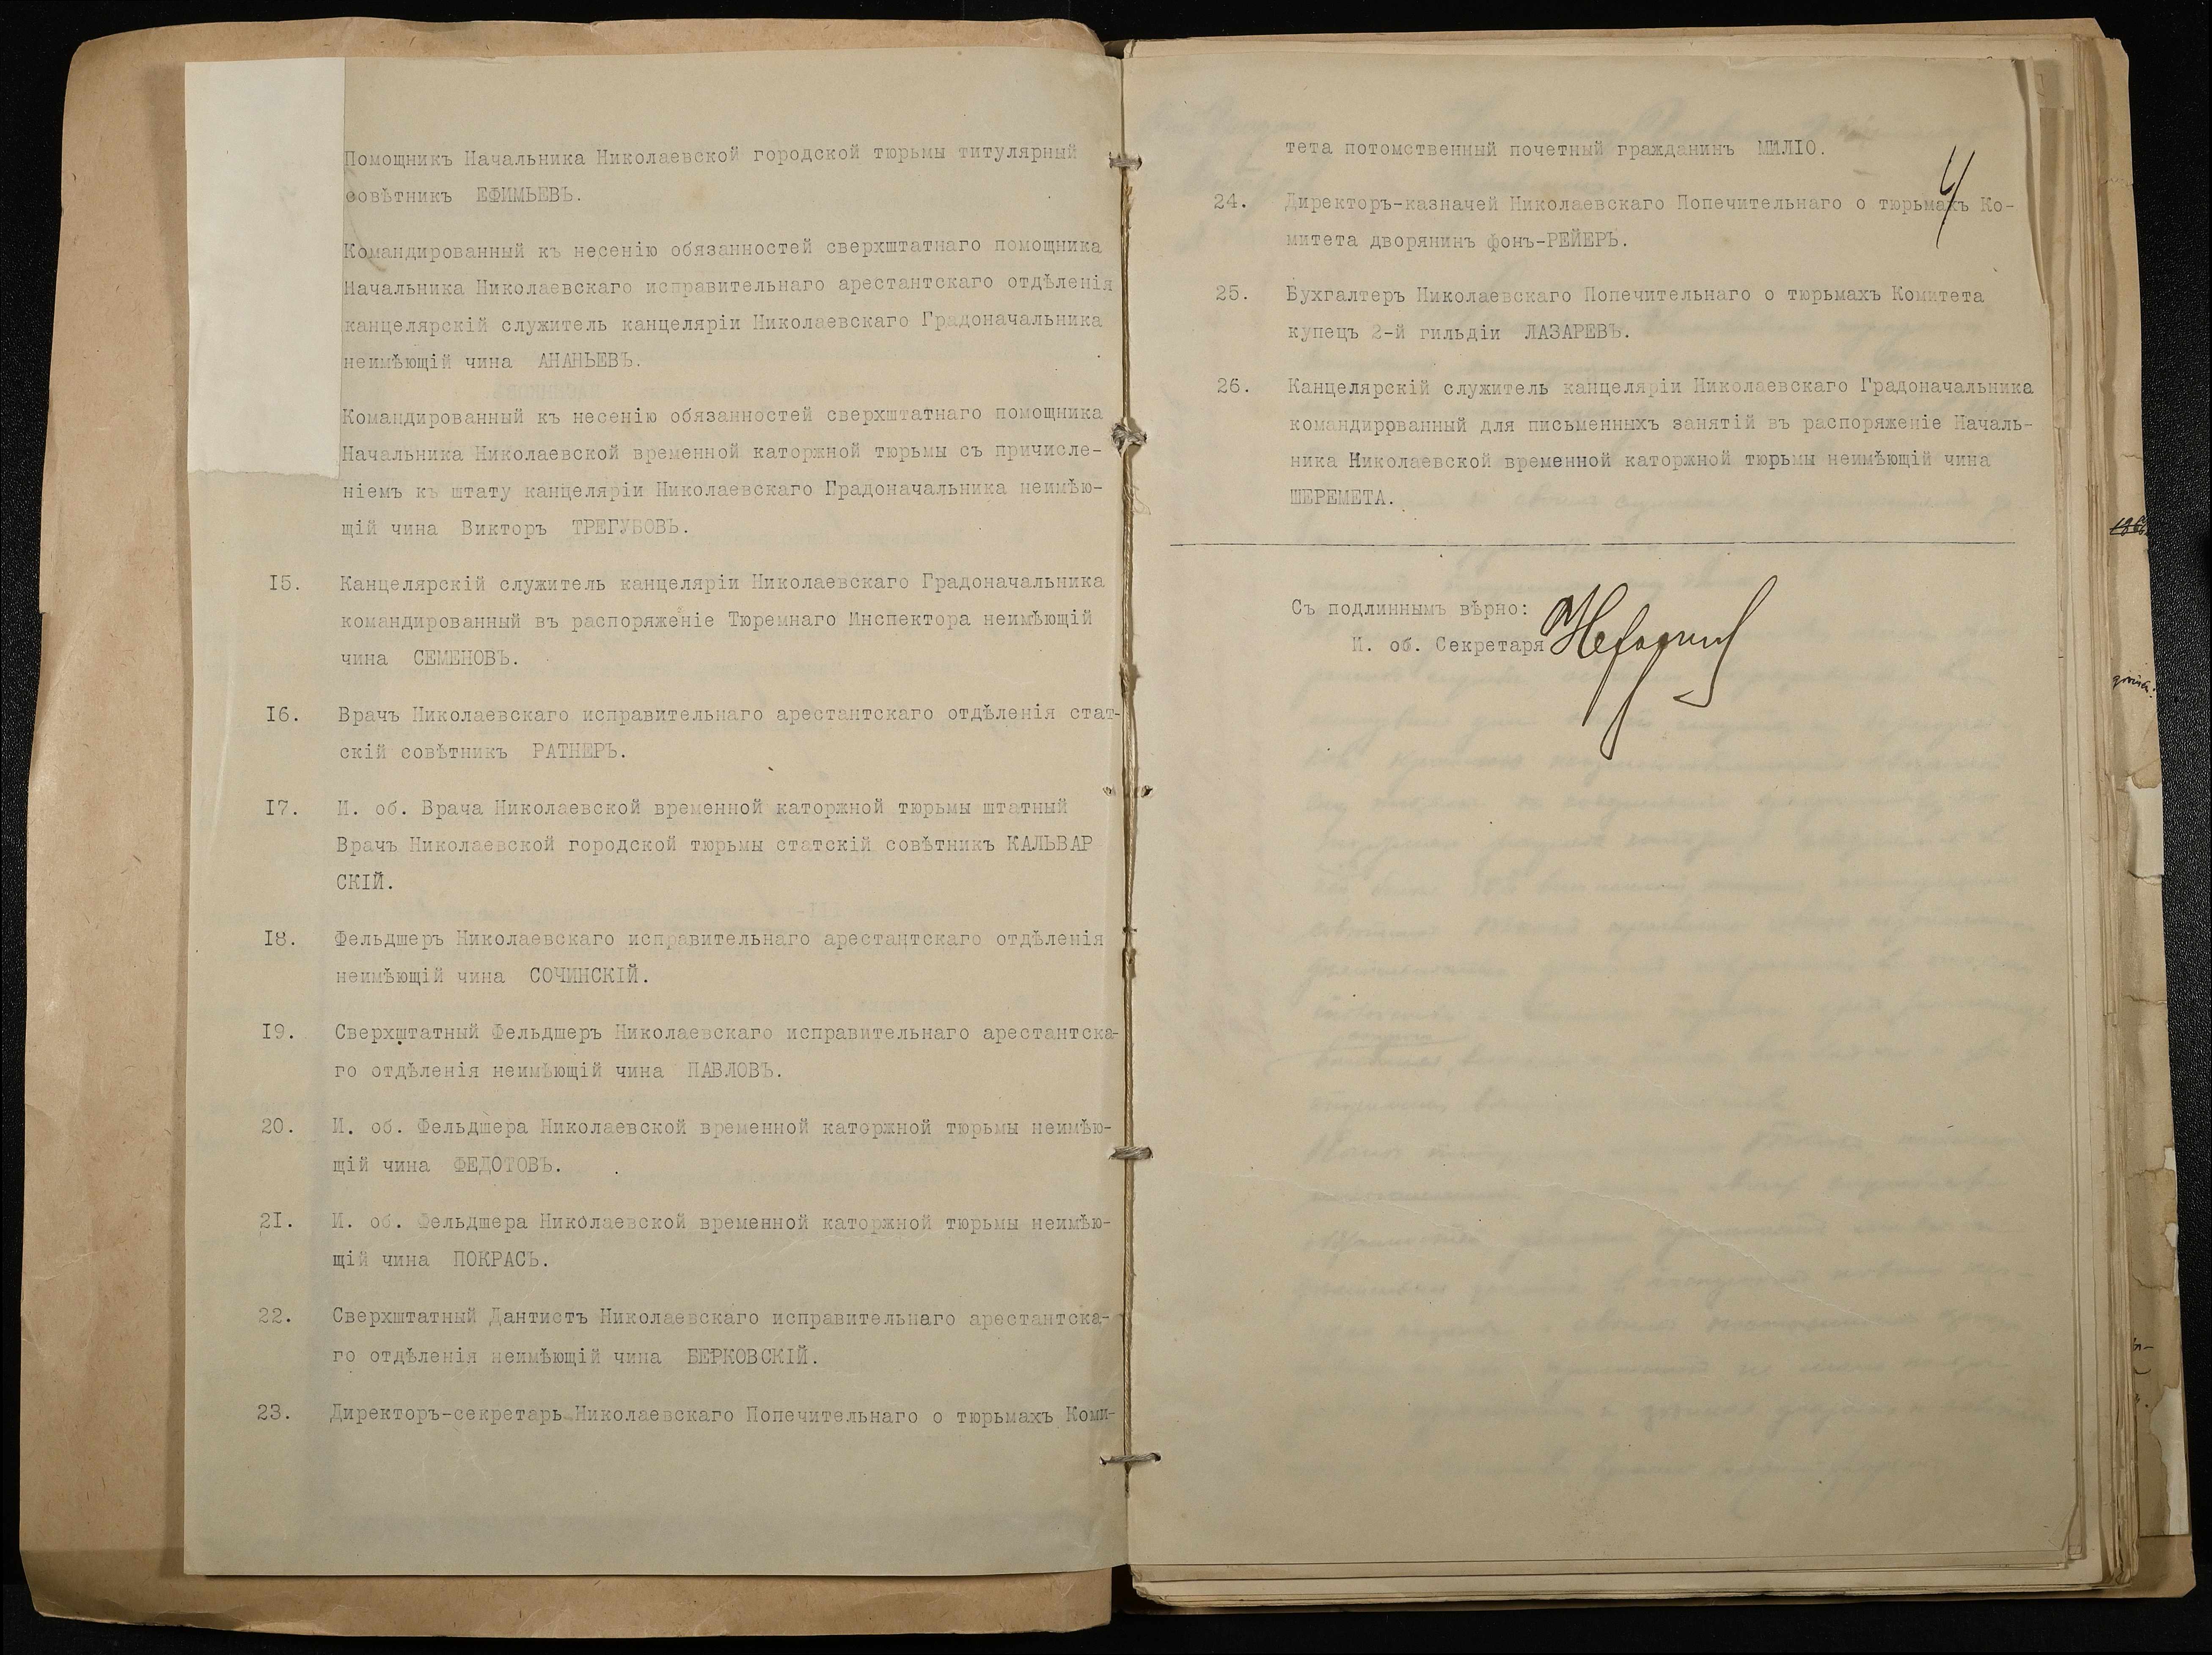 Помощникъ Начальника Николаевской городской тюрьмы титулярный
совѣтникъ ЕФИМЬЕВЪ.
Командированный къ несенію обязанностей сверхштатнаго помощника
Начальника Николаевскаго исправительнаго арестантскаго отдѣленія
канцелярскій служитель канцеляріи Николаевскаго Градоначальника
неимѣющій чина АНАНЬЕВЪ.
Командированный къ несенію обязанностей сверхштатнаго помощника
Начальника Николаевской временной каторжной тюрьмы съ причисле-
ніемъ къ штату канцеляріи Николаевскаго Градоначальника неимѣю-
щій чина Викторъ ТРЕГУБОВЪ.
I5. Канцелярскій служитель канцеляріи Николаевскаго Градоначальника
командированный въ распоряженіе Тюремнаго Инспектора неимѣющій
чина СЕМЕНОВЪ.
I6. Врачъ Николаевскаго исправительнаго арестантскаго отдѣленія стат-
скій совѣтникъ РАТНЕРЪ.
I7. И. об. Врача Николаевской временной каторжной тюрьмы штатный
Врачъ Николаевской городской тюрьмы статскій совѣтникъ КАЛЬВАР
СКІЙ.
I8. Фельдшеръ Николаевскаго исправительнаго арестантскаго отдѣленія
неимѣющій чина СОЧИНСКІЙ.
I9. Сверхштатный Фельдшеръ Николаевскаго исправительнаго арестантска-
го отдѣленія неимѣющій чина ПАВЛОВЪ.
20. И. об. Фельдшера Николаевской временной каторжной тюрьмы неимѣю-
щій чина ФЕДОТОВЪ.
2I. И. об. Фельдшера Николаевской временной каторжной тюрьмы неимѣю-
щій чина ПОКРАСЪ.
22. Сверхштатный Дантистъ Николаевскаго исправительнаго арестантска-
го отдѣленія неимѣющій чина БЕРКОВСКІЙ.
23. Директоръ-секретарь Николаевскаго Попечительнаго о тюрьмахъ Коми-
тета потомственный почетный гражданинъ МИЛІО.
4
24. Директоръ-казначей Николаевскаго Попечительнаго о тюрьмахъ Ко-
митета дворянинъ фонъ-РЕЙЕРЪ.
25. Бухгалтеръ Николаевскаго Попечительнаго о тюрьмахъ Комитета
купецъ 2-й гильдіи ЛАЗАРЕВЪ.
26. Канцелярскій служитель канцеляріи Николаевскаго Градоначальника
командированный для письменныхъ занятій въ распоряженіе Началь-
ника Николаевской временной каторжной тюрьмы неимѣющій чина
ШЕРЕМЕТА.
Съ подлиннымъ вѣрно:
И. об. Секретаря